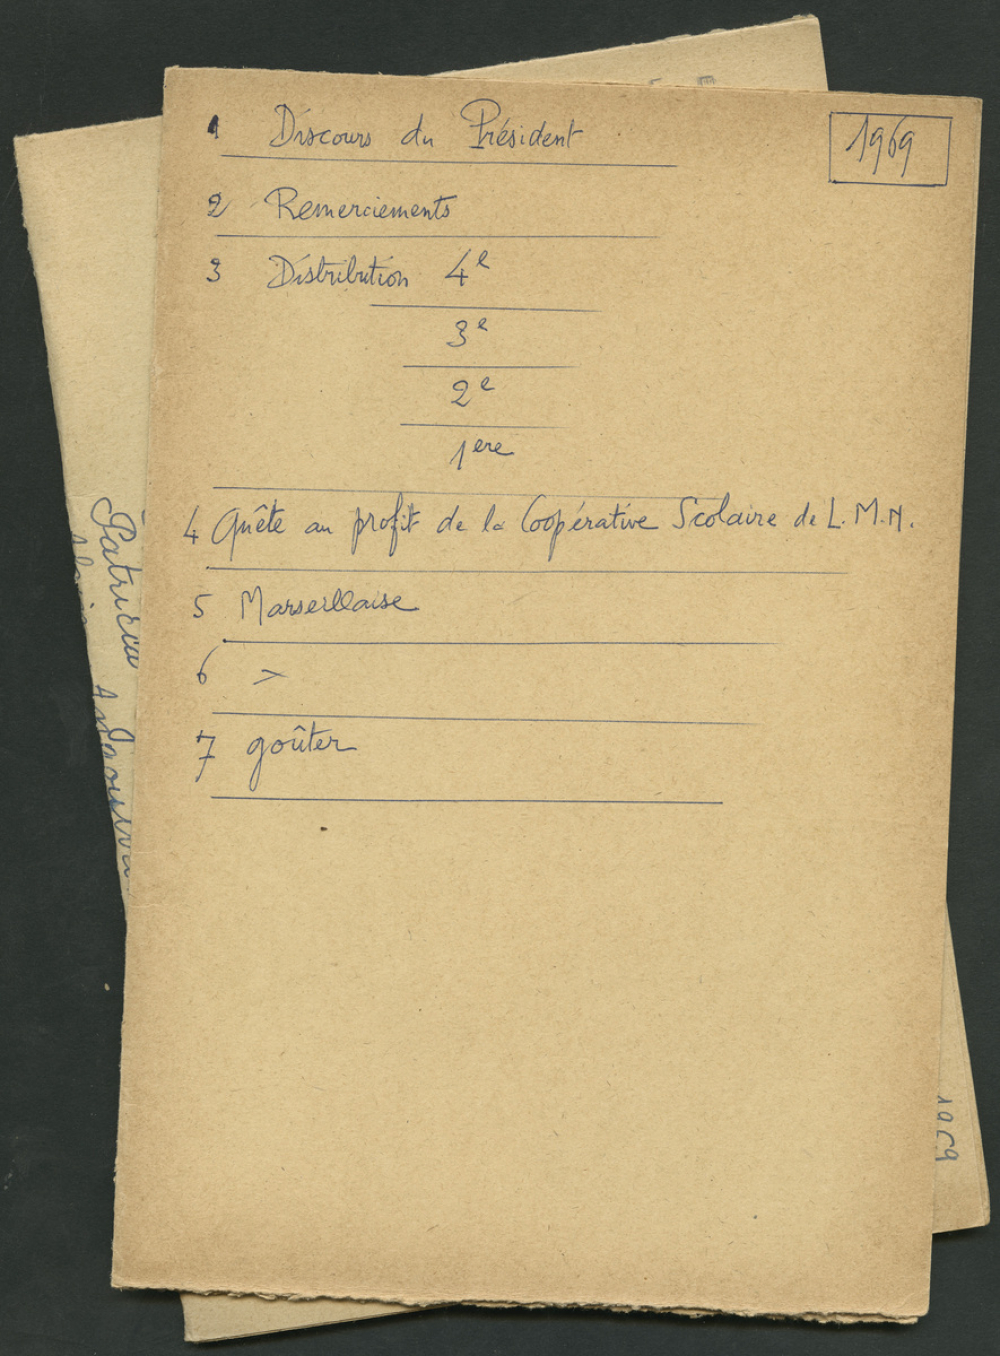 1 Discours du Président
1969
2 Remerciements
3 Distribution 4e
3e
2e
1ere
4 Quête au profit de la Coopérative Scolaire de L.M.N.
5 Marseillaise
6
7 goûter
Patricia